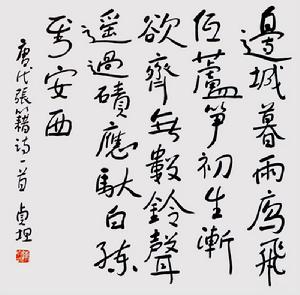 邊城暮雨鴈飛
低蘆笋初生漸
欲齊無數鈴聲
遥過磧應馱白練
到安西
唐代張籍詩一首